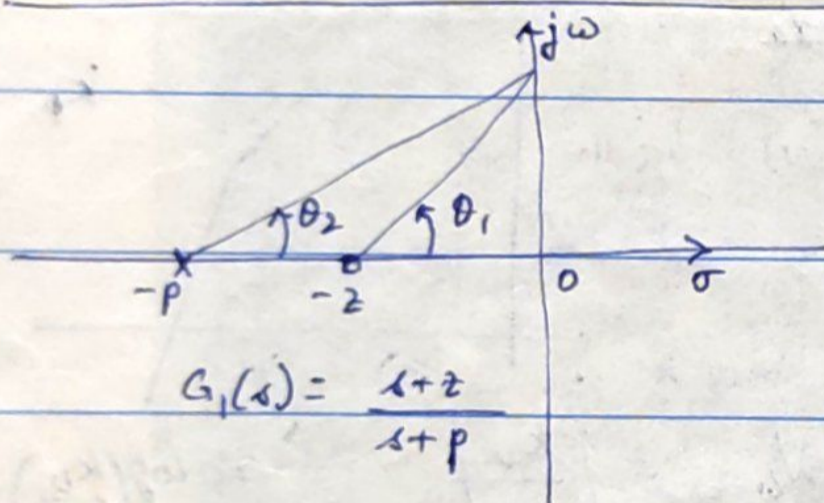 jω
θ₂ θ₁
-p -z 0 σ
G₁(s) = s+z
s+p